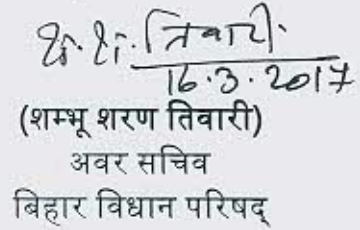 श. श. तिवारी.
16.3.2017
(शम्भू शरण तिवारी)
अवर सचिव
बिहार विधान परिषद्